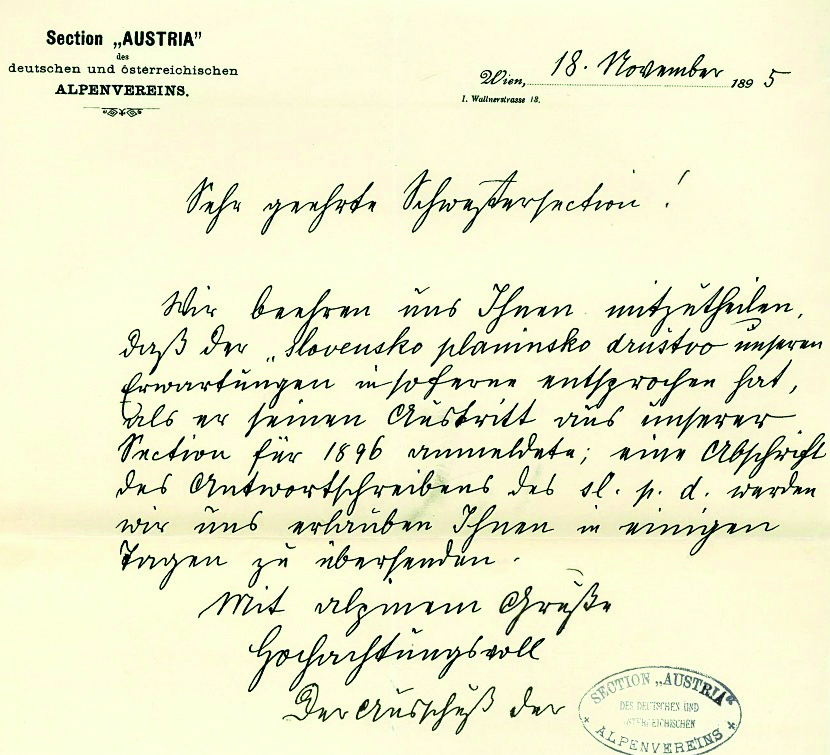 Section „AUSTRIA"
des
deutschen und österreichischen
ALPENVEREINS.
Wien, 18. November 1895
I. Wallnerstrasse 13.
Sehr geehrte Schwestersection!
Wir beehren uns Ihnen mitzutheilen,
daß der „Slovensko planinsko društvo unseren
Erwartungen insoferne entsprochen hat,
als er seinen Austritt aus unserer
Section für 1896 anmeldete; eine Abschrift
des Antwortschreibens des sl. p. d. werden
wir uns erlauben Ihnen in einigen
Tagen zu übersenden.
Mit alpinem Gruße
Hochachtungsvoll
Der Ausschuß der
SECTION „AUSTRIA"
DES DEUTSCHEN UND
ÖSTERREICHISCHEN
ALPENVEREINS